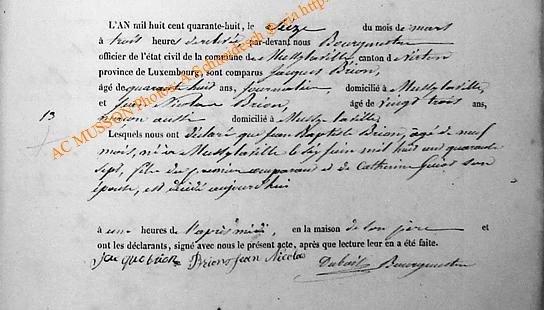 L'AN mil huit cent quarante-huit, le seize du mois de mars
à trois heures de relevée par-devant nous Bourgmestre
officier de l'état civil de la commune de Mussy-la-ville, canton de Virton
province de Luxembourg, sont comparus Jacques Brion,
âgé de quarante huit ans, journalier, domicilié à Mussy-laville,
et Jean Nicolas Brion, âgé de vingt trois ans,
13
aussi domicilié à Mussy-laville
Lesquels nous ont déclaré que Jean Baptiste Brion, âgé de neuf
mois, né à Mussy laville le six juin mil huit cent quarante
sept, fils du premier comparant et de Catherine son
épouse, est décédé aujourd'hui
à une heures de l'après midi, en la maison de son père et
ont les déclarants, signé avec nous le présent acte, après que lecture leur en a été faite.
Jacque brion Brion Jean Nicolas Bourgmestre
AC MUSSON Photos A. Schneidesch